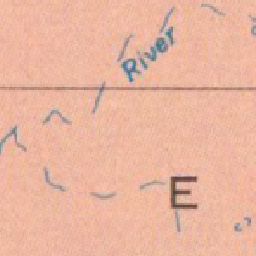 River
E